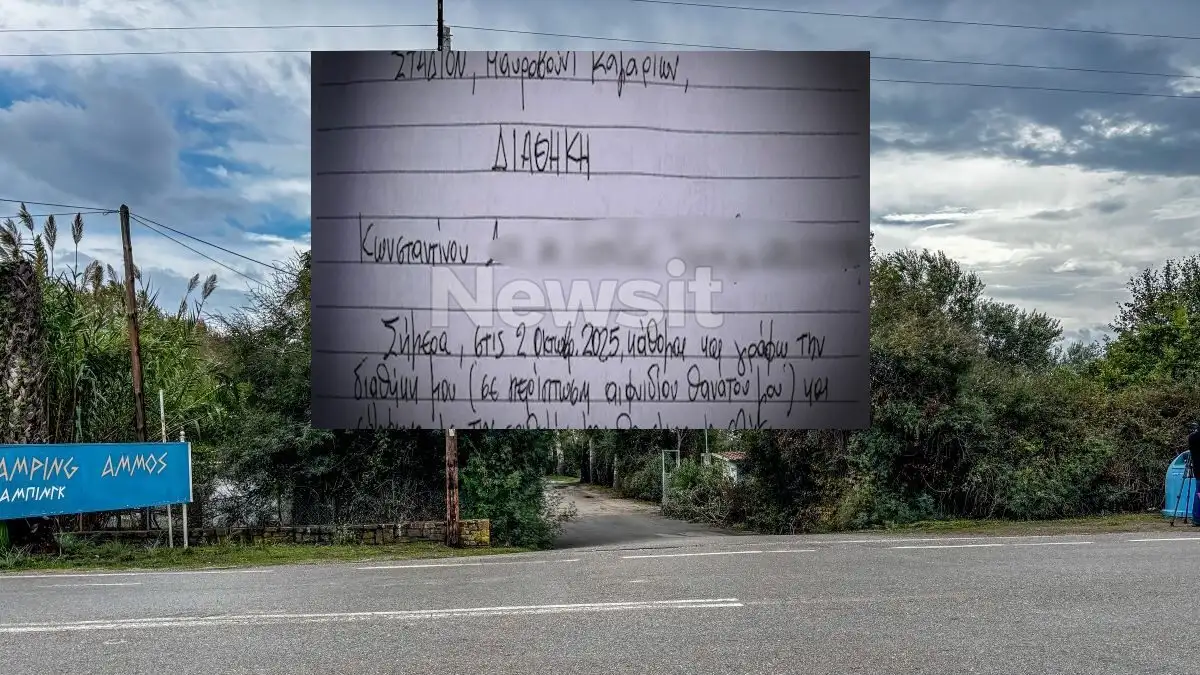 ΣΤΑΔΙΟΝ, Μαυροβούνι
ΔΙΑΘΗΚΗ
Κωνσταντίνου
Newsit
Σήμερα, στις 2 Οκτωβρ. 2025, κάθομαι και γράφω την
διαθήκη μου (σε περίπτωση αιφνιδίου θανάτου μου) και
AMPING AMMOS
ΑΜΠΙΝΓΚ